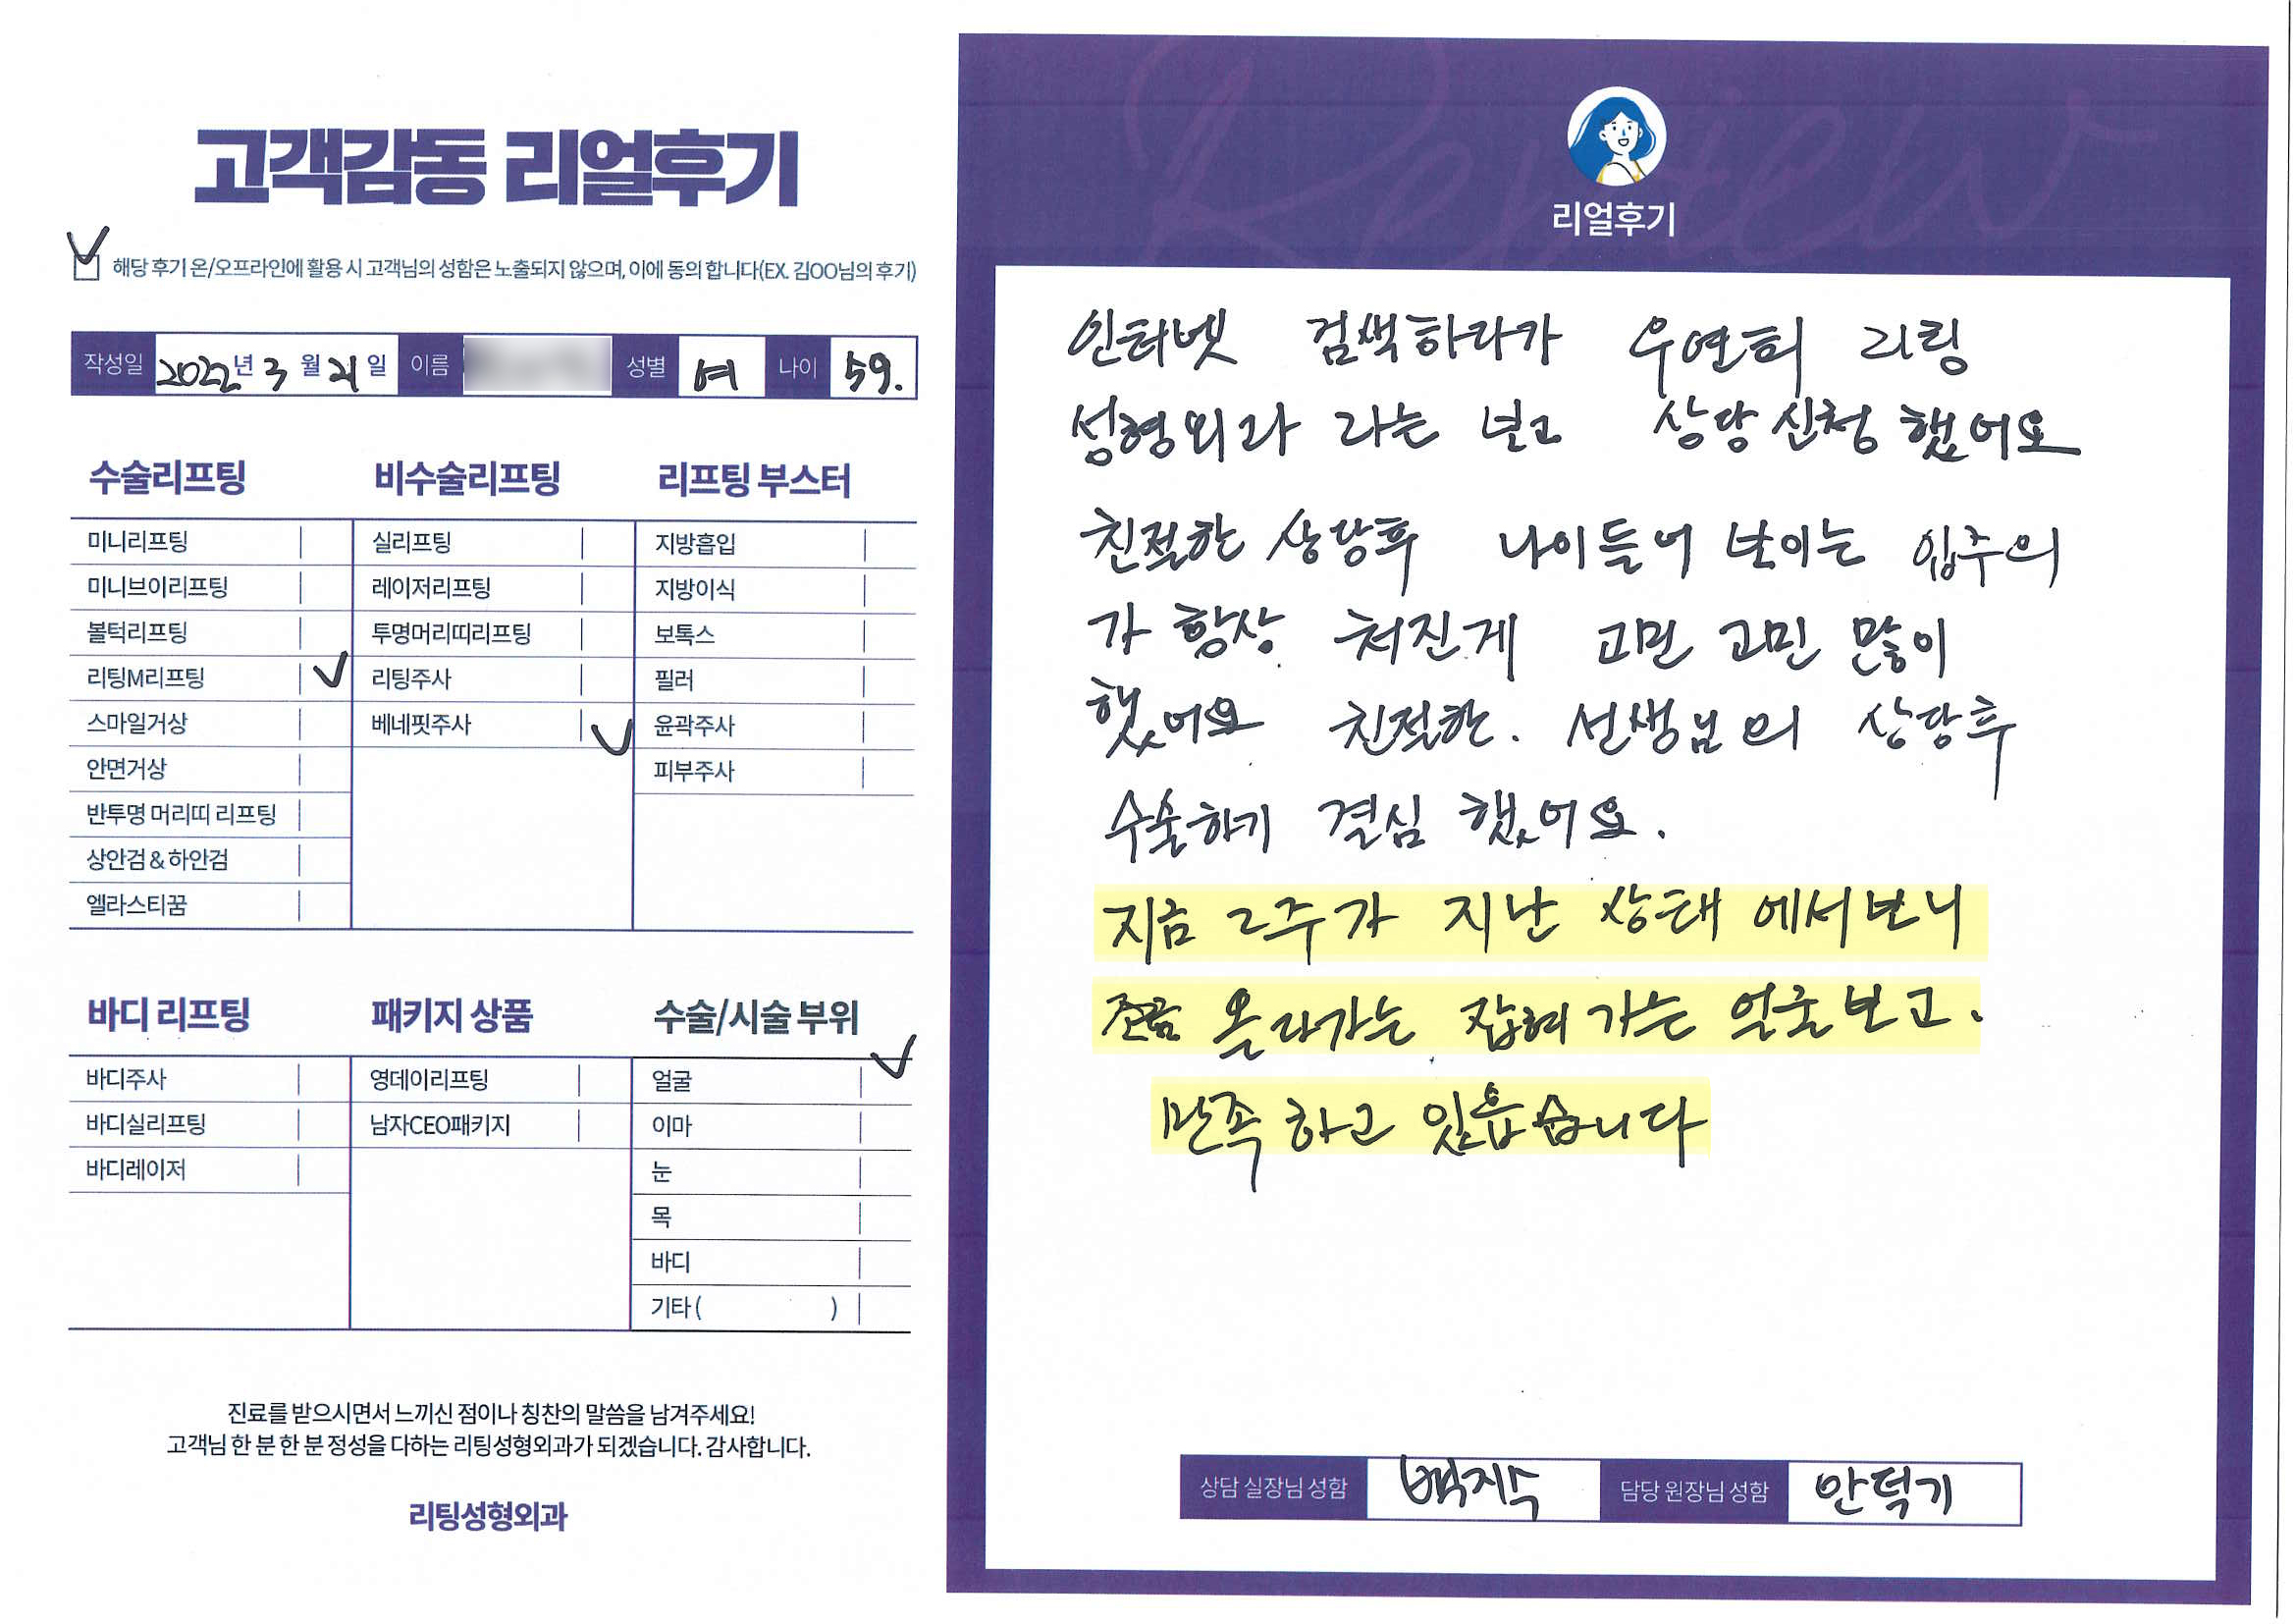 고객감동 리얼후기
해당 후기 온/오프라인에 활용 시 고객님의 성함은 노출되지 않으며, 이에 동의 합니다(EX. 김OO님의 후기)
작성일 2022년 3월 21일 이름 성별 여 나이 59.
수술리프팅
미니리프팅
미니브이리프팅
볼턱리프팅
리팅M리프팅
스마일거상
안면거상
반투명 머리띠 리프팅
상안검 & 하안검
엘라스티꿈
비수술리프팅
실리프팅
레이저리프팅
투명머리띠리프팅
리팅주사
베네핏주사
리프팅 부스터
지방흡입
지방이식
보톡스
필러
윤곽주사
피부주사
바디 리프팅
바디주사
바디실리프팅
바디레이저
패키지 상품
영데이리프팅
남자CEO패키지
수술/시술 부위
얼굴
이마
눈
목
바디
기타 ( )
진료를 받으시면서 느끼신 점이나 칭찬의 말씀을 남겨주세요!
고객님 한 분 한 분 정성을 다하는 리팅성형외과가 되겠습니다. 감사합니다.
리팅성형외과
Review
리얼후기
인터넷 검색하다가 우연희 리팅
성형외과 라는 보고 상담신청 했어요
친절한 상담후 나이들어 보이는 입주의
가 항상 처진게 고민 고민 많이
했어요 친절한. 선생님의 상담후
수술하기 결심 했어요.
지금 2주가 지난 상태 에서보니
조금 올라가는 잡혀가는 얼굴보고.
만족하고 있읍습니다
상담 실장님 성함 백지수 담당 원장님 성함 안덕기